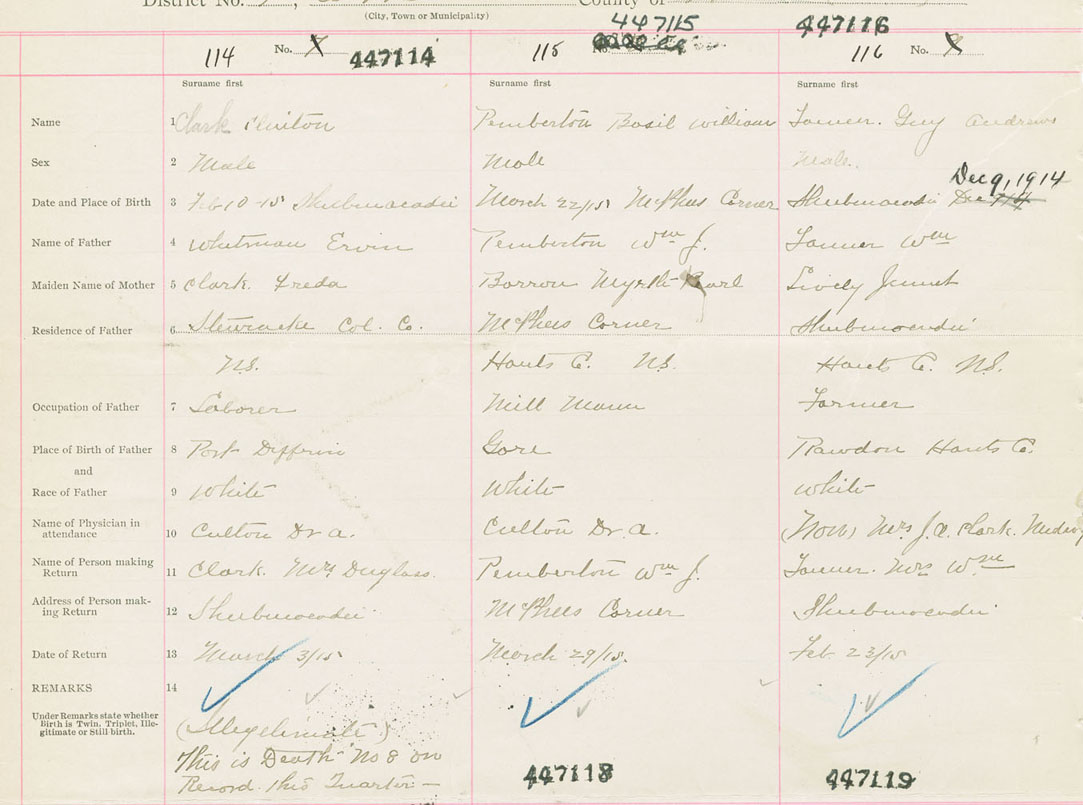 District No. County of
(City, Town or Municipality)
447115 447116
114 No. X 447114 115 No. 116 No. X
Surname first Surname first Surname first
Name 1 Clark Clinton Pemberton Basil William Guy Andrew
Sex 2 Male Male Male.
Dec 9, 1914
Date and Place of Birth 3 Feb 10-15 Shubenacadie March 22/15 McPhees Corner Shubenacadie Dec
Name of Father 4 Whitman Ervin Pemberton Wm J. Wm
Maiden Name of Mother 5 Clark Freda Barron Myrtle Pearl Lively Jennet
Residence of Father 6 Stewiacke Col. Co. McPhees Corner Shubenacadie
N.S. Hants C. N.S. Hants C. N.S.
Occupation of Father 7 Laborer Mill Mann Farmer
Place of Birth of Father 8 Port Diffrin Gore Rawdon Hants C.
and
Race of Father 9 White White White
Name of Physician in
attendance 10 Culton Dr. A. Culton Dr. A. Mrs J. A. Clark.
Name of Person making
Return 11 Clark. Mrs Duglass. Pemberton Wm J. Mrs Wm
Address of Person mak-
ing Return 12 Shubenacadie McPhees Corner Shubenacadie
Date of Return 13 March 3/15 March 29/15. Feb 23/15
REMARKS 14
Under Remarks state whether
Birth is Twin, Triplet, Ille-
gitimate or Still-birth.
(Illegetimate)
This is Death No 8 on
Record this Quarter —
447118 447119